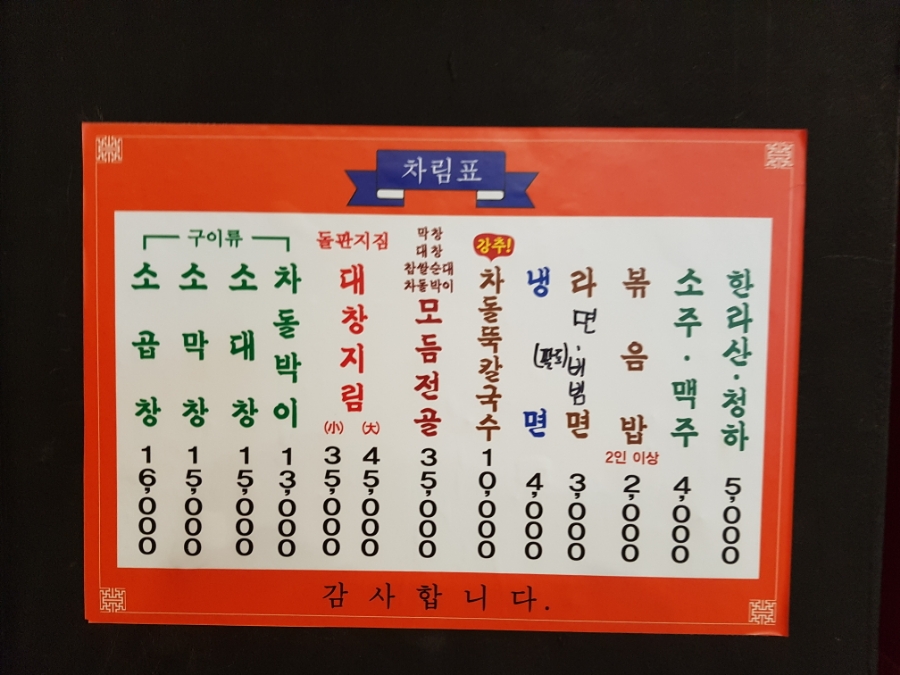 차림표
구이류
소곱창 16,000
소막창 15,000
소대창 15,000
차돌박이 13,000
돌판지짐
대창지림
(小) 35,000
(大) 45,000
막창
대창
찹쌀순대
차돌박이
모듬전골 35,000
강추!
차돌뚝칼국수 10,000
냉면 4,000
라면·비빔면 3,000
(팔도)
볶음밥
2인 이상
2,000
소주·맥주 4,000
한라산·청하 5,000
감사합니다.